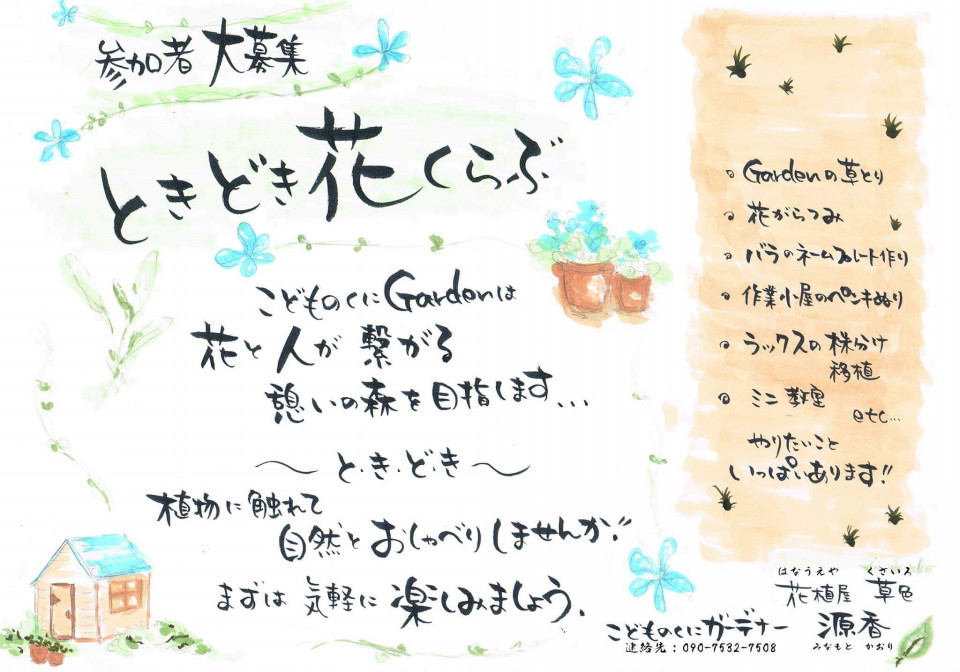 参加者大募集
ときどき花くらぶ
こどものくにGardenは
花と人が繋がる
憩いの森を目指します...
～と・き・ど・き～
植物に触れて
自然とおしゃべりしませんか!!
まずは気軽に楽しみましょう。
Gardenの草とり
花がらつみ
バラのネームプレート作り
作業小屋のペンキぬり
ラックスの株分け
移植
ミニ教室
etc...
やりたいこと
いっぱいあります!!
はなうえや くさいろ
花植屋 草色
こどものくにガーデナー 源香
みなもと かおり
連絡先：090-7532-7508